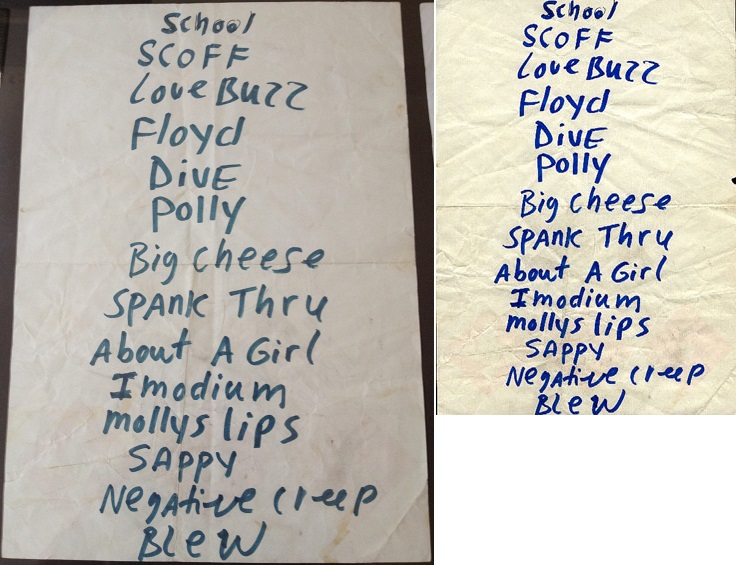 School
SCOFF
Love Buzz
Floyd
DivE
polly
Big cheese
SPANK Thru
About A Girl
Imodium
mollys lips
SAPPY
Negative creep
BLeW
School
SCOFF
Love Buzz
Floyd
DivE
polly
Big cheese
SPANK Thru
About A Girl
Imodium
mollys lips
SAPPY
Negative creep
BLeW